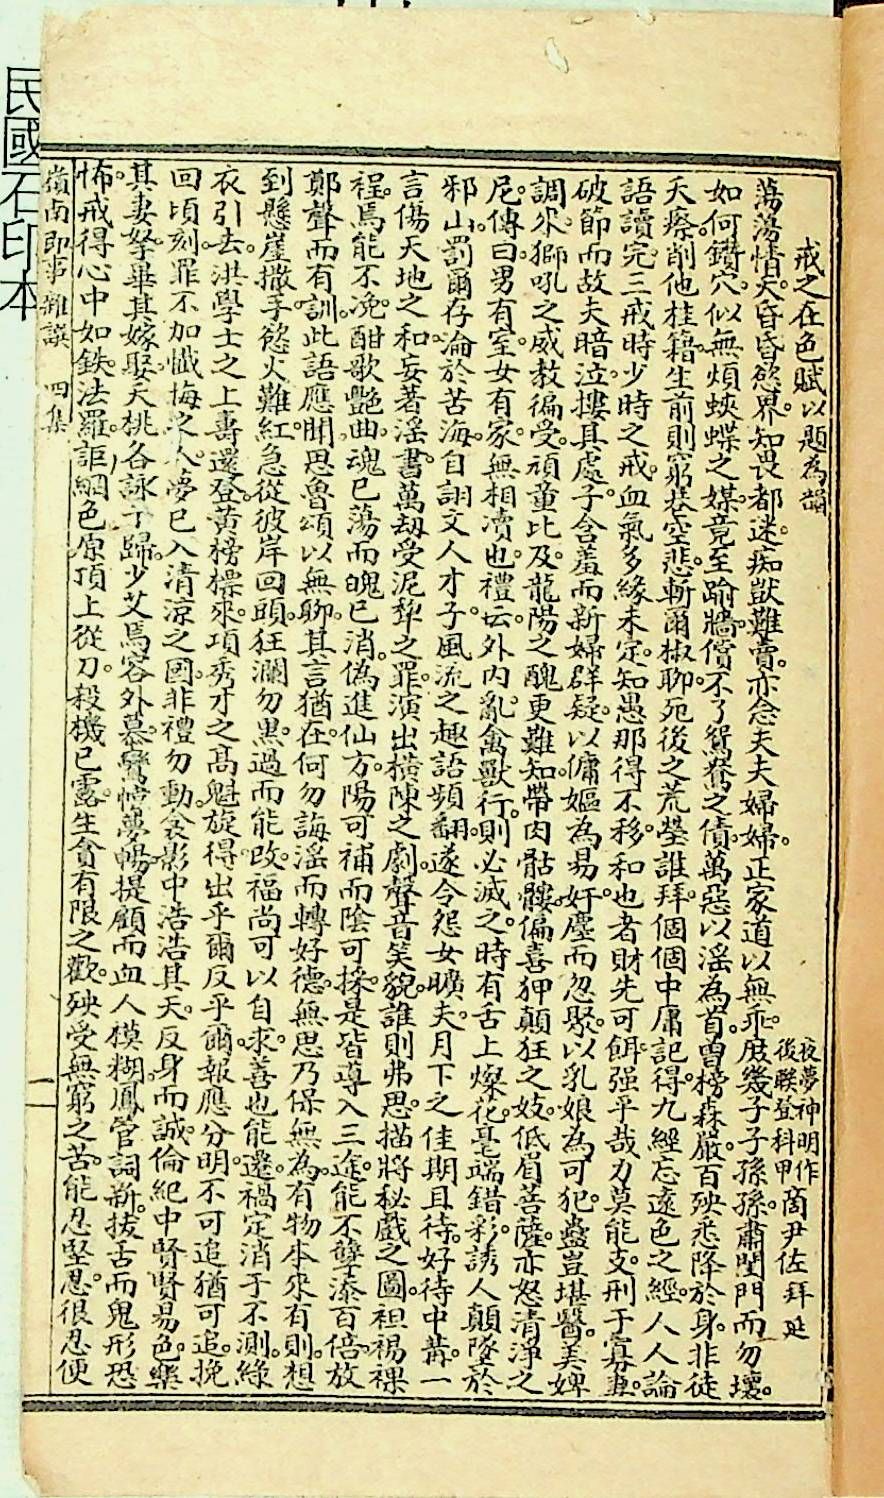 民國石印本
戒之在色賦以題為韻 夜夢神明作後联登科甲 商尹佐拜延
蕩蕩情天昏昏慾界知畏都迷痴獃難賣亦念夫夫婦婦正家道以無乖庶幾子子孫孫肅閨門而勿壞
如何鑽穴似無煩蛺蝶之媒竟至踰牆償不了鴛鴦之債萬惡以淫為首曾榜森嚴百殃悉降於身非徒
夭瘵削他桂籍生前則窮巷空悲斬爾椒聊死後之荒塋誰拜個個中庸記得九經忘遠色之經人人論
語讀完三戒時少時之戒血氣多緣未定知愚那得不移和也者財先可餌强乎哉力莫能支刑于寡妻
破節而故夫暗泣摟其處子含羞而新婦群疑以傭嫗為易奸麀而忽聚以乳娘為可犯蠱豈堪醫美婢
調來獅吼之威教徧受頑童比及龍陽之醜更難知帶肉骷髏偏喜狎顛狂之妓低眉菩薩亦怒清淨之
尼傳曰男有室女有家無相瀆也禮云外內亂禽獸行則必滅之時有舌上燦花毫端錯彩誘人顛墜於
邪山罰爾存淪於苦海自詡文人才子風流之趣語頻翻遂令怨女曠夫月下之佳期且待好待中冓一
言傷天地之和妄著淫書萬劫受泥犂之罪演出橫陳之劇聲音笑貌誰則弗思描將秘戲之圖袒裼裸
程焉能不浼酣歌艷曲魂已蕩而魄已消偽進仙方陽可補而陰可採是皆導入三途能不孽添百倍放
鄭聲而有訓此語應聞思魯頌以無聊其言猶在何勿誨淫而轉好德無思乃保無為有物本來有則想
到懸崖撒手慾火難紅急從彼岸回頭狂瀾勿黑過而能改福尚可以自求善也能遷禍定消于不測綠
衣引去洪學士之上壽還登黃榜標來項秀才之高魁旋得出乎爾反乎爾報應分明不可追猶可追挽
回頃刻罪不加懺悔之人夢已入清涼之國非禮勿動衾影中浩浩其天反身而誠倫紀中賢賢易色樂
其妻孥畢其嫁娶夭桃各詠于歸少艾焉容外慕鴛幃夢暢提顧而血人模糊鳳管詞新拔舌而鬼形恐
怖戒得心中如鉄法羅詎綱色原頂上從刀殺機已露生貪有限之歡殃受無窮之苦能忍堅忍很忍便
嶺南即事雜譔 四集 二